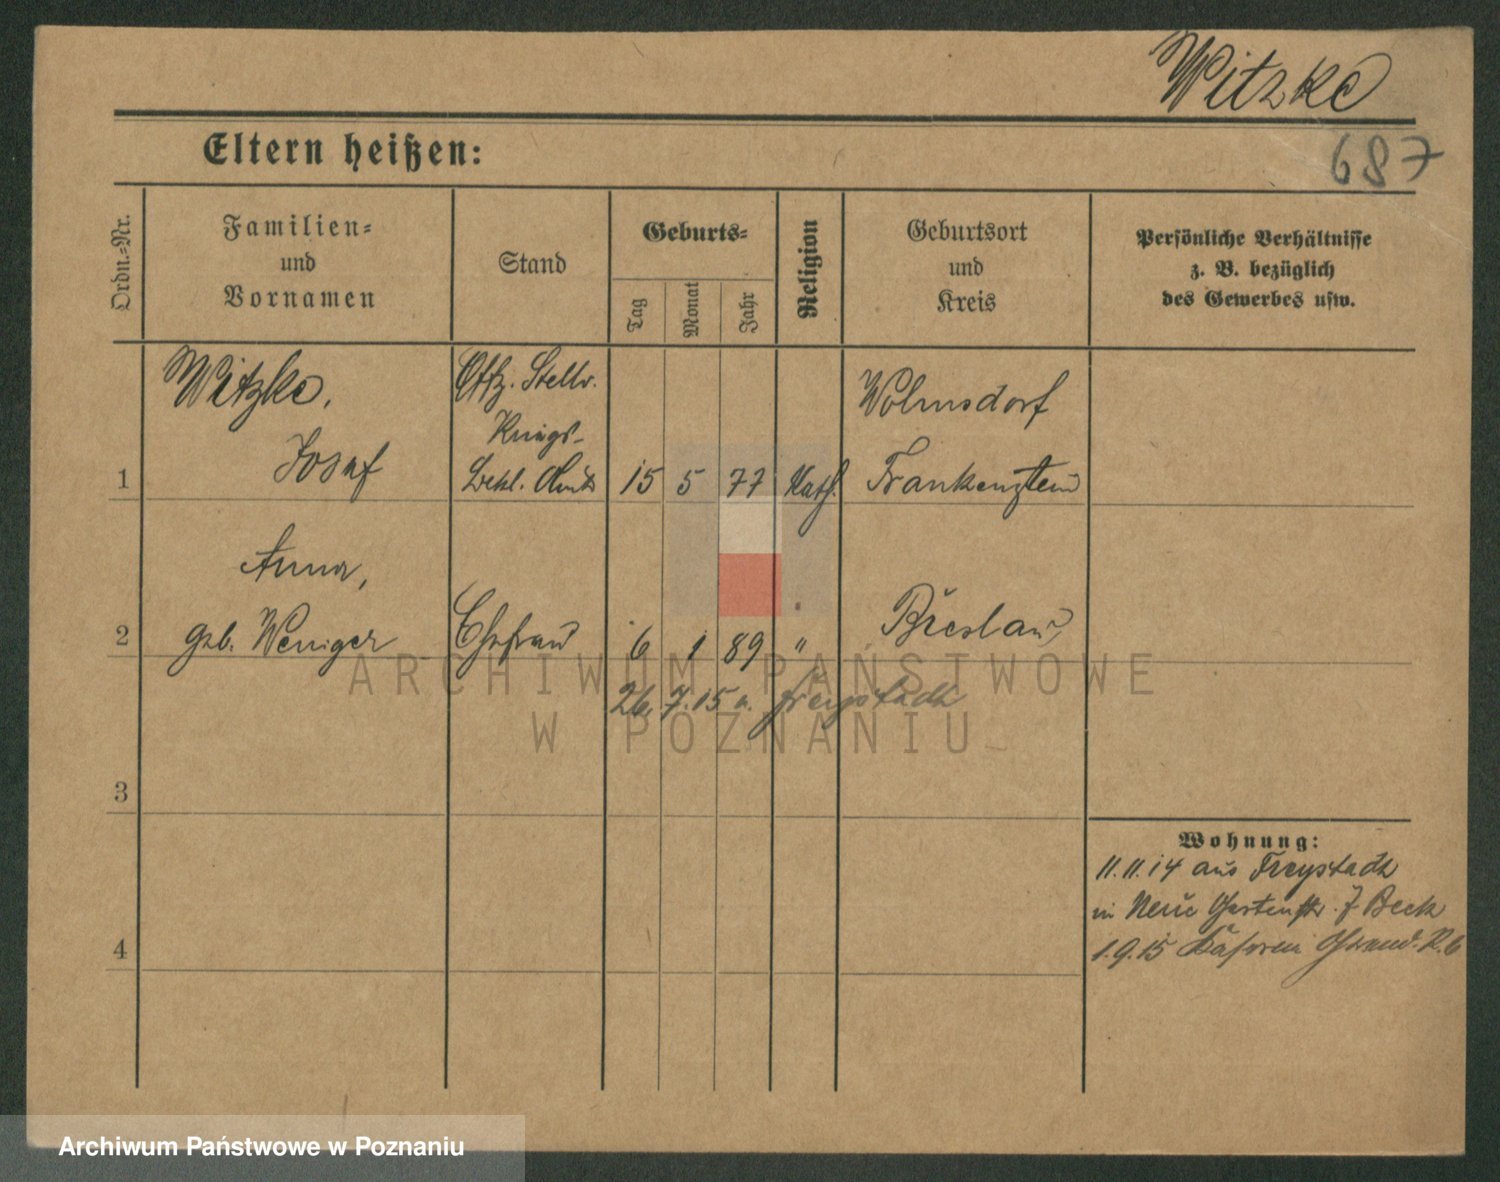 Witzke
687
Eltern heißen:
Ordn.-Nr.
Familien-
und
Vornamen
Stand
Geburts-
Tag
Monat
Jahr
Religion
Geburtsort
und
Kreis
Persönliche Verhältnisse
z. B. bezüglich
des Gewerbes usw.
1
Witzke,
Josef
Offz. Stellv.
Kriegs-
Bekl. Amt
15
5
77
Kath.
Wolmsdorf
Frankenstein
2
Anna,
geb. Weniger
Ehefrau
6
1
89
"
Breslau
26. 7. 15 a. Freystadt
3
Wohnung:
11.11.14 aus Freystadt
in Neue Gartenstr. 7 Beck
1.9.15
4
ARCHIWUM PAŃSTWOWE
W POZNANIU
Archiwum Państwowe w Poznaniu